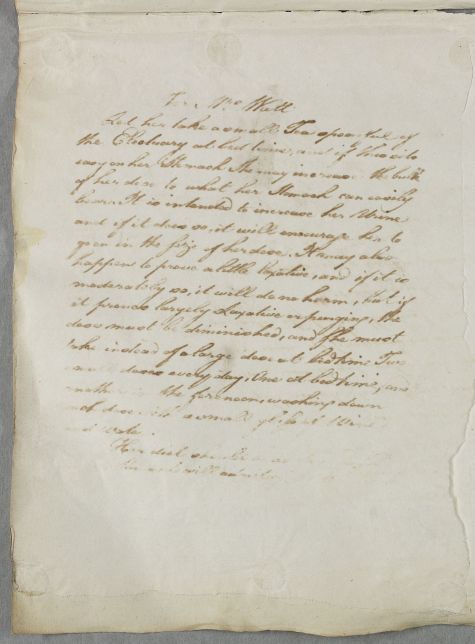 For Mrs Wall
Let her take a small Tea spoonful of
the Electuary at bed time, and if this sits
easy on her Stomach She may increase the bulk
of her dose to what her Stomach can easily
bear. It is intended to increase her Urine
and if it does so, it will encourage her to
go on in the size of her dose. It may also
happen to prove a little laxative, and if it is
moderately so, it will do no harm, but if
it proves largely Laxative or purging, the
dose must be diminished, and She must
take instead of a large dose at bedtime Two
small doses every day, One at bedtime, and
another in the forenoon, washing down
each dose with a small of Wine
and water.
Her diet
Stomach will admit